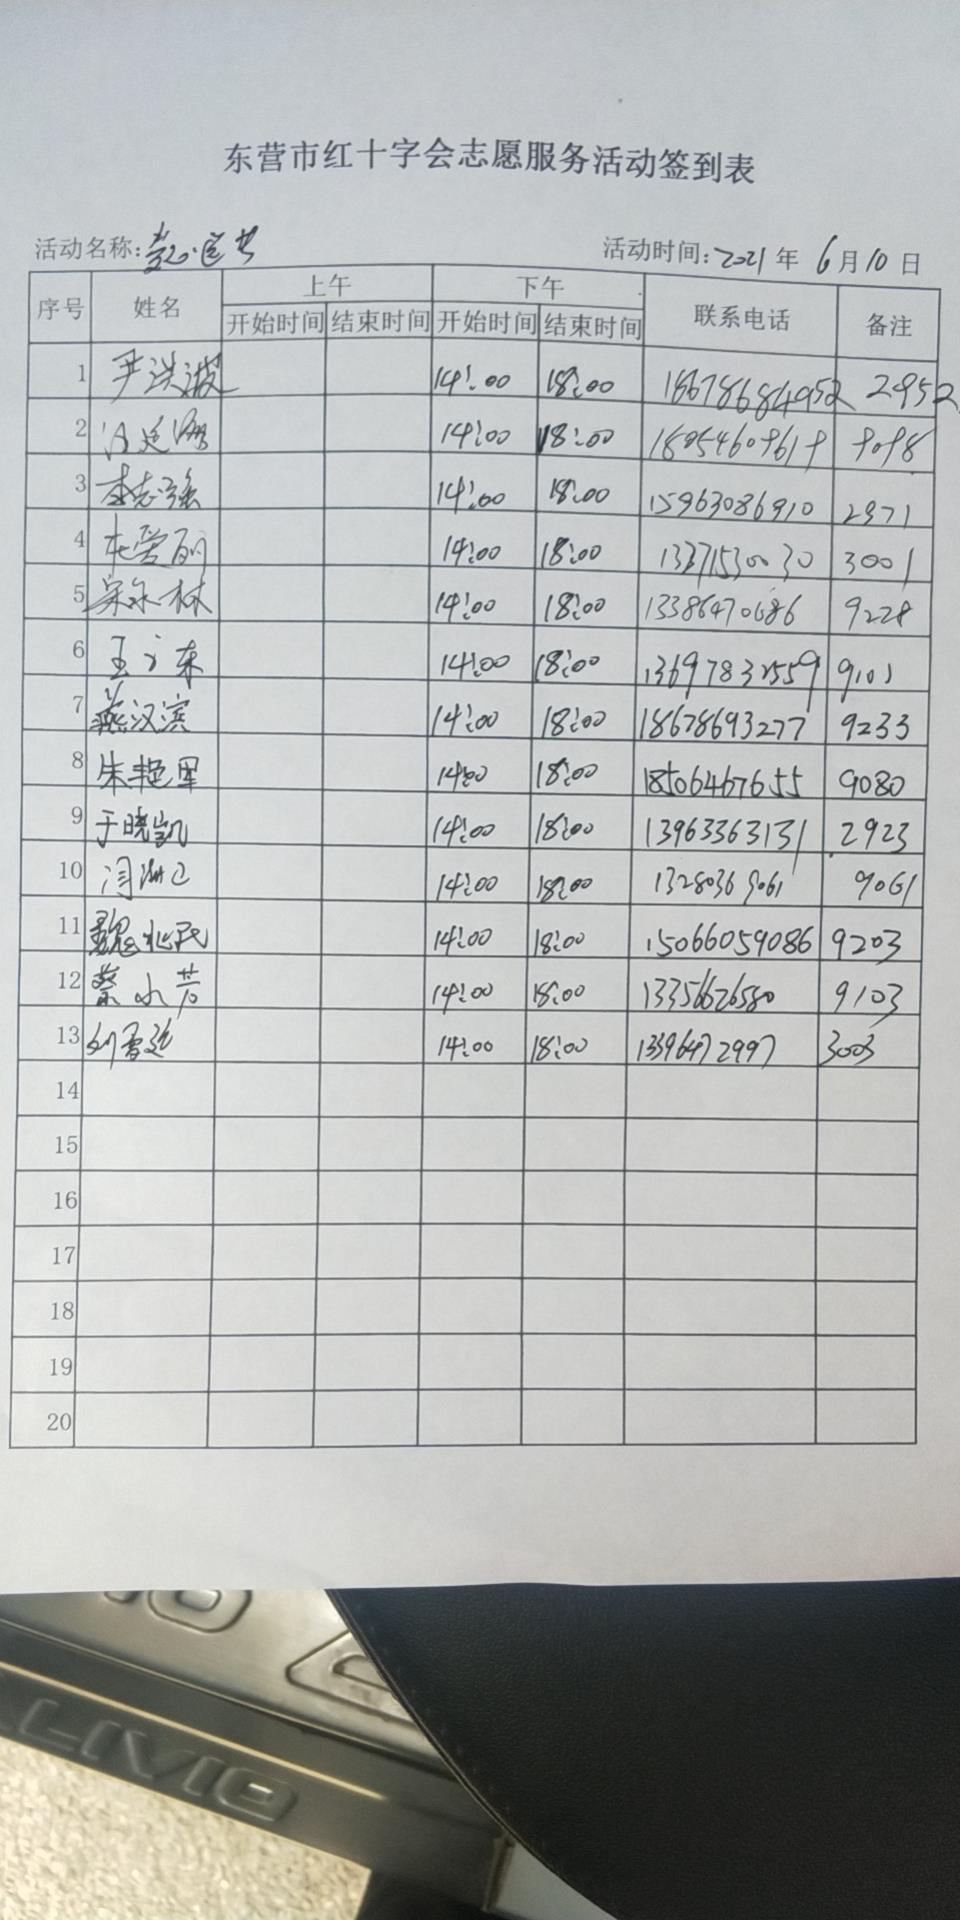 东营市红十字会志愿服务活动签到表
活动名称: 活动时间: 2021年 6月10日
序号 姓名 上午 下午 联系电话 备注
开始时间 结束时间 开始时间 结束时间
1 尹洪波 14:00 18:00 2952
2 14:00 18:00
3 李志强 14:00 18:00 15963086910 2971
4 14:00 18:00 13371530030 3001
5 宋永林 14:00 18:00 13386470686 9228
6 王广东 14:00 18:00 9101
7 燕汉滨 14:00 18:00 18678693277 9233
8 朱艳军 14:00 18:00 18506467655 9080
9 于晓凯 14:00 18:00 13963363131 2923
10 14:00 18:00 13280369061 9061
11 魏兆民 14:00 18:00 15066059086 9203
12 蔡水芳 14:00 18:00 13356626580 9103
13 14:00 18:00 13396472997 3003
14
15
16
17
18
19
20
ALIVIO